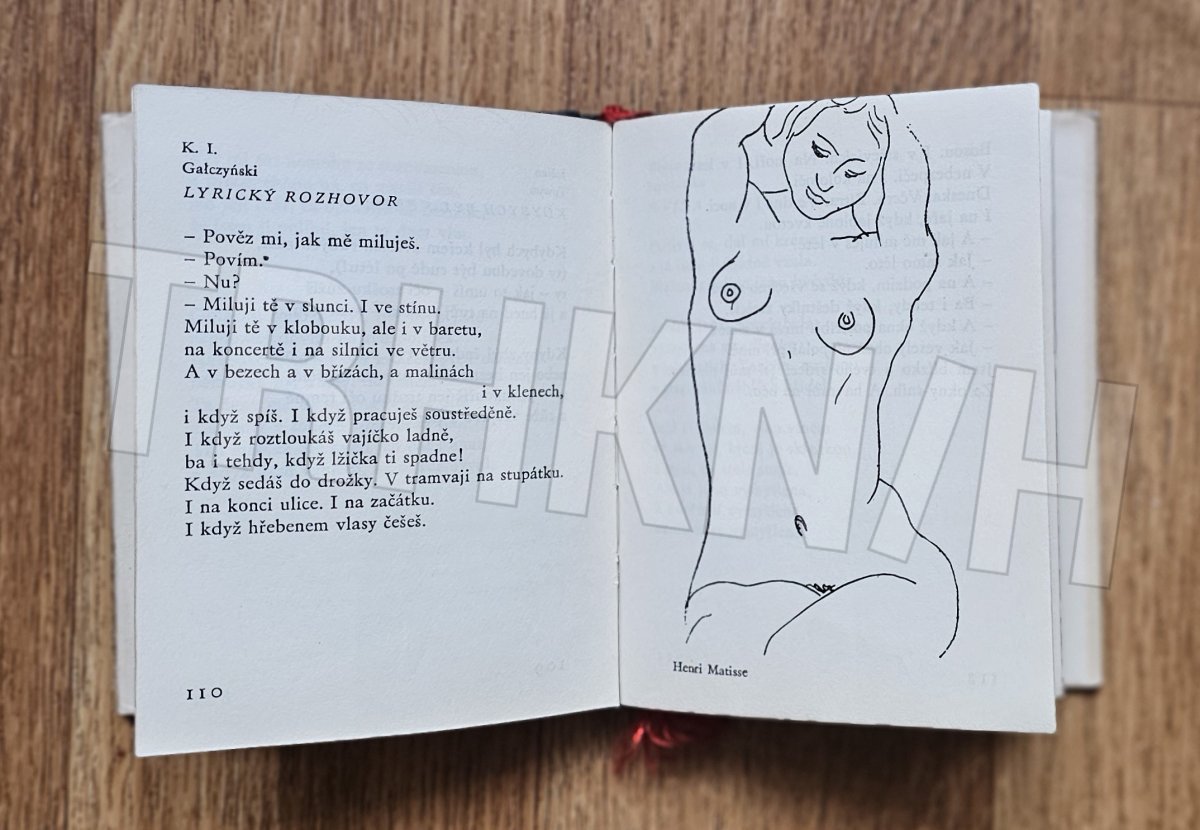 K. I.
Gałczyński
LYRICKÝ ROZHOVOR
– Pověz mi, jak mě miluješ.
– Povím.
– Nu?
– Miluji tě v slunci. I ve stínu.
Miluji tě v klobouku, ale i v baretu,
na koncertě i na silnici ve větru.
A v bezech a v břízách, a malinách
i v klenech,
i když spíš. I když pracuješ soustředěně.
I když roztloukáš vajíčko ladně,
ba i tehdy, když lžička ti spadne!
Když sedáš do drožky. V tramvaji na stupátku.
I na konci ulice. I na začátku.
I když hřebenem vlasy češeš.
110
Henri Matisse
TRHKNIH